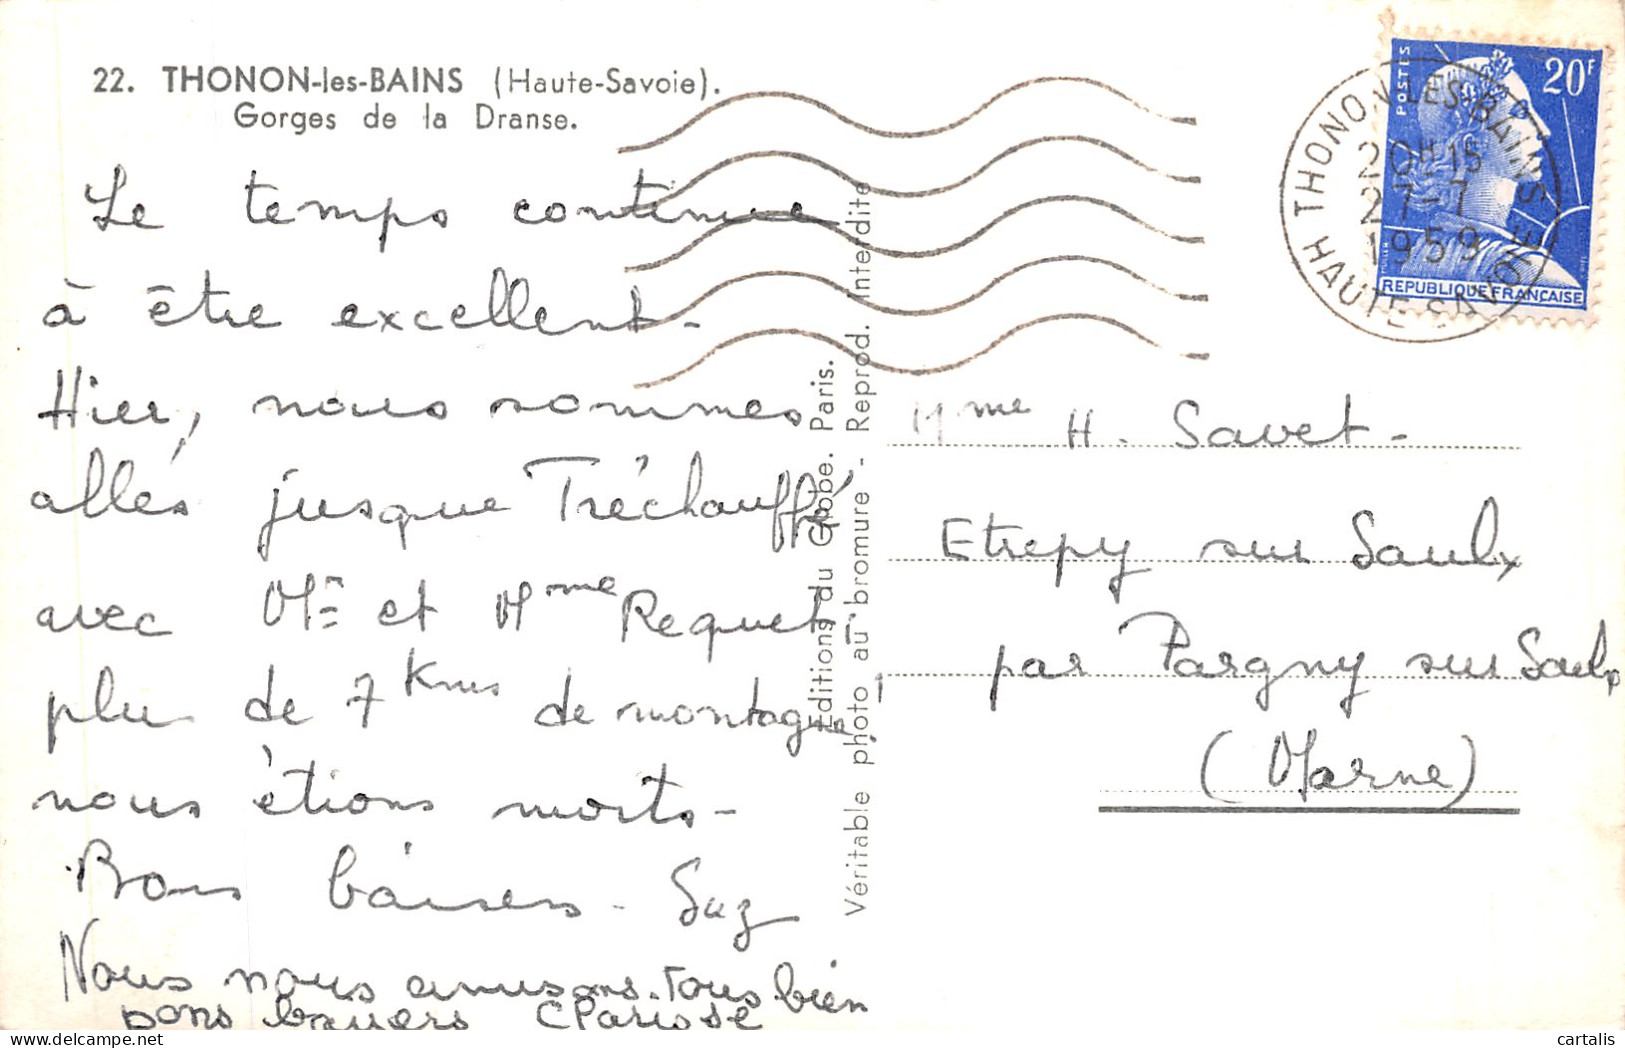 22. THONON-les-BAINS (Haute-Savoie).
Gorges de la Dranse.
Le temps continue
à être excellent-
Hier, nous sommes
allés jusque Tréchauffé
avec Mr et Mme Requet,
plus de 7 Kms de montagne!
nous étions morts-
Bons baisers - Suz
Nous nous amusons tous bien
bons baisers Clarisse
Editions du Globe. Paris.
Véritable photo au bromure - Reprod. Interdite
POSTES
20F
REPUBLIQUE FRANÇAISE
THONON-LES-BAINS
20H15
27-7
1959
HAUTE-SAVOIE
Mme H. Savet-
Etrepy sur Saulx
par Pargny sur Saulx
(Marne)
cartalis